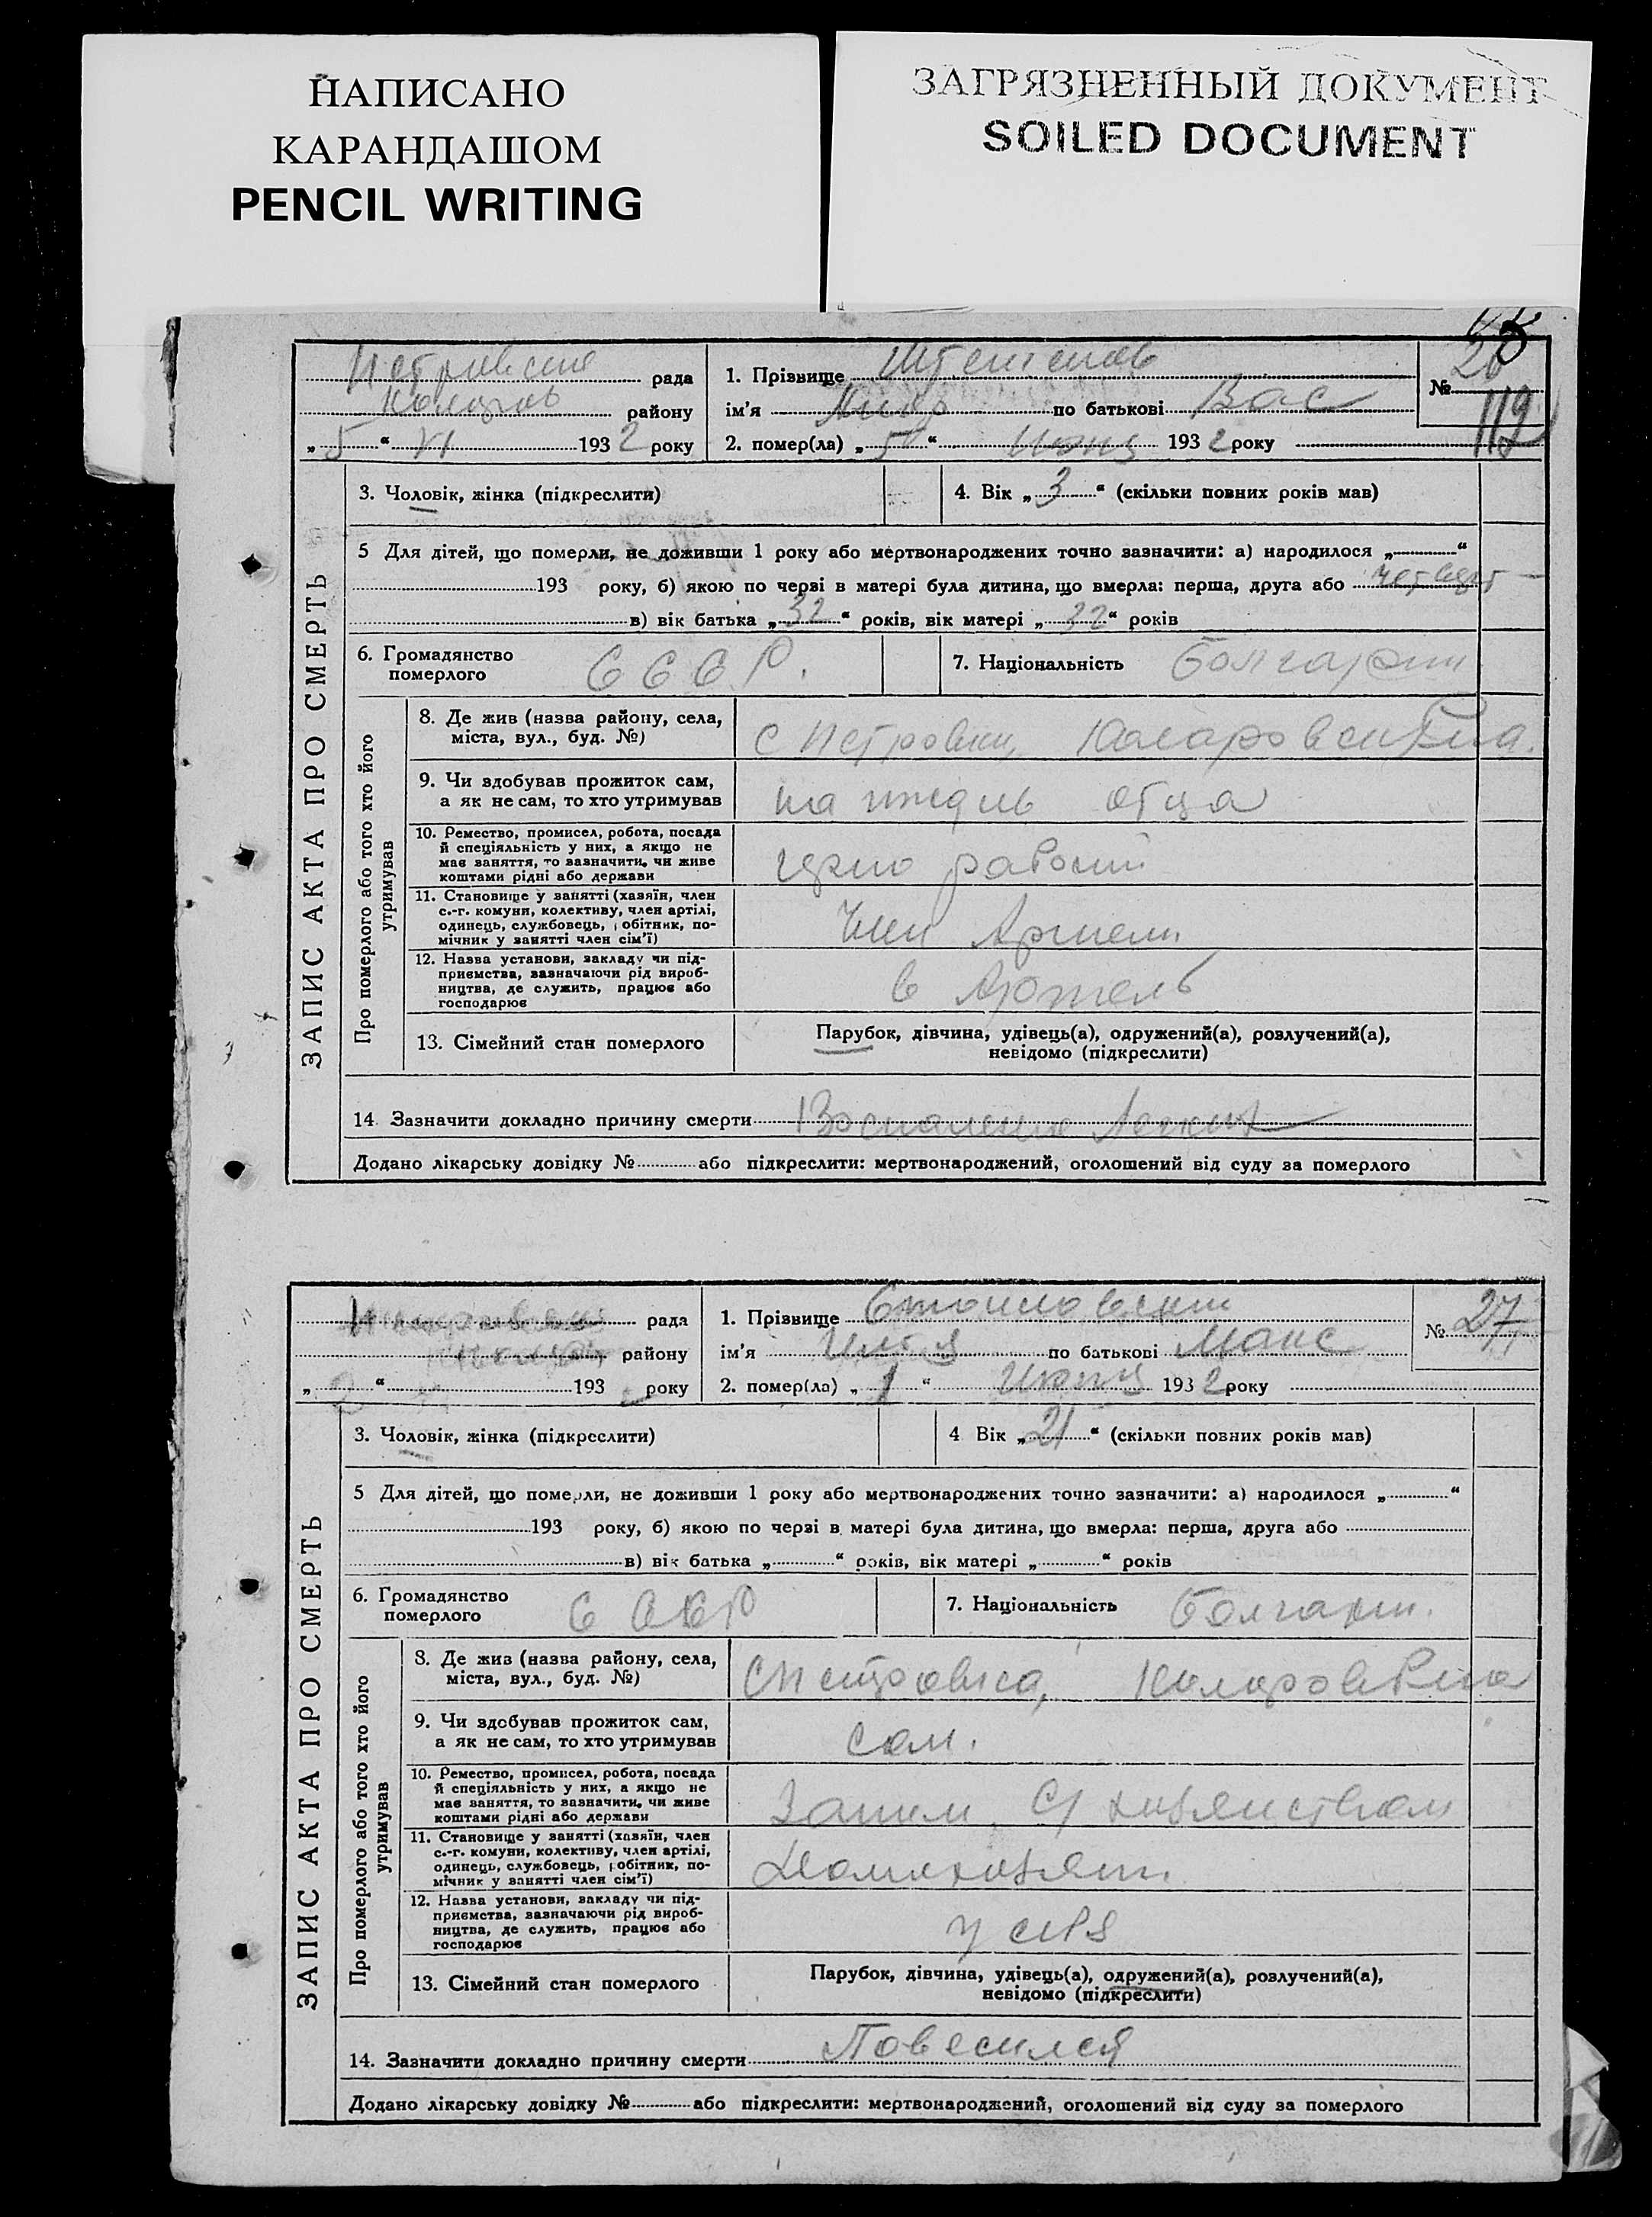 НАПИСАНО
КАРАНДАШОМ
PENCIL WRITING
ЗАГРЯЗНЕННЫЙ ДОКУМЕНТ
SOILED DOCUMENT
ЗАПИС АКТА ПРО СМЕРТЬ
рада
району
„ 5 “ VI 1932 року
1. Прізвище
ім'я по батькові Вас
2. помер(ла) „ 5 “ Июня 1932 року
№ 26
119
3. Чоловік, жінка (підкреслити)
4. Вік „ 3 “ (скільки повних років мав)
5 Для дітей, що померли, не доживши 1 року або мертвонароджених точно зазначити: а) народилося „ “
193 року, б) якою по черзі в матері була дитина, що вмерла: перша, друга або
в) вік батька „ 32 “ років, вік матері „ 32 “ років
6. Громадянство
померлого
СССР.
7. Національність Болгарин
Про померлого або того хто його
утримував
8. Де жив (назва району, села,
міста, вул., буд. №)
с Петровка,
9. Чи здобував прожиток сам,
а як не сам, то хто утримував
на иждив отца
10. Ремество, промисел, робота, посада
й спеціяльність у них, а якщо не
має заняття, то зазначити, чи живе
коштами рідні або держави
черно рабочий
11. Становище у занятті (хазяїн, член
с.-г. комуни, колективу, член артілі,
одинець, службовець, робітник, по-
мічник у занятті член сім'ї)
Член Артели
12. Назва установи, закладу чи під-
приємства, зазначаючи рід вироб-
ництва, де служить, працює або
господарює
в Артель
13. Сімейний стан померлого
Парубок, дівчина, удівець(а), одружений(а), розлучений(а),
невідомо (підкреслити)
14. Зазначити докладно причину смерти Воспаление Легких
Додано лікарську довідку № або підкреслити: мертвонароджений, оголошений від суду за померлого
ЗАПИС АКТА ПРО СМЕРТЬ
рада
району
„ “ 193 року
1. Прізвище
ім'я Илья по батькові
2. помер(ла) „ 1 “ Июня 1932 року
№ 27
3. Чоловік, жінка (підкреслити)
4 Вік „ 21 “ (скільки повних років мав)
5 Для дітей, що померли, не доживши 1 року або мертвонароджених точно зазначити: а) народилося „ “
193 року, б) якою по черзі в матері була дитина, що вмерла: перша, друга або
в) вік батька „ “ років, вік матері „ “ років
6. Громадянство
померлого
СССР
7. Національність Болгарин.
Про померлого або того хто його
утримував
8. Де жив (назва району, села,
міста, вул., буд. №)
С Петровка,
9. Чи здобував прожиток сам,
а як не сам, то хто утримував
сам.
10. Ремество, промисел, робота, посада
й спеціяльність у них, а якщо не
має заняття, то зазначити, чи живе
коштами рідні або держави
Заним С/хозяиством
11. Становище у занятті (хазяїн, член
с.-г. комуни, колективу, член артілі,
одинець, службовець, робітник, по-
мічник у занятті член сім'ї)
Домохозяин
12. Назва установи, закладу чи під-
приємства, зазначаючи рід вироб-
ництва, де служить, працює або
господарює
у себя
13. Сімейний стан померлого
Парубок, дівчина, удівець(а), одружений(а), розлучений(а),
невідомо (підкреслити)
14. Зазначити докладно причину смерти Повесился
Додано лікарську довідку № або підкреслити: мертвонароджений, оголошений від суду за померлого